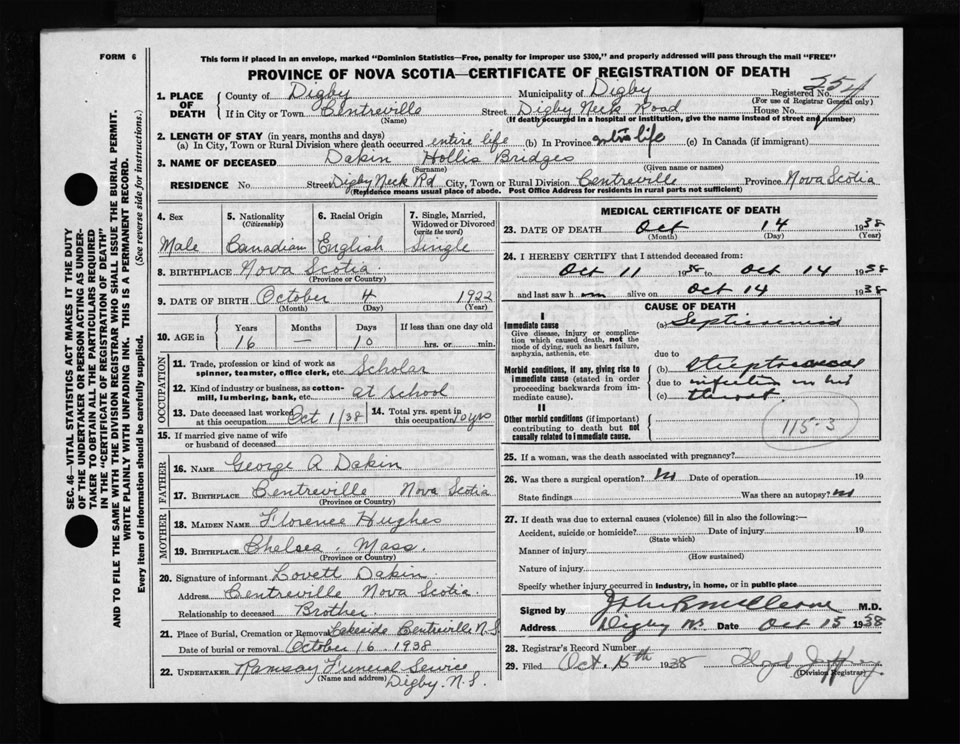 FORM 6
This form if placed in an envelope, marked "Dominion Statistics—Free, penalty for improper use $300," and properly addressed will pass through the mail "FREE"
PROVINCE OF NOVA SCOTIA—CERTIFICATE OF REGISTRATION OF DEATH
1. PLACE OF DEATH
County of Digby Municipality of Digby Registered No. 354
(For use of Registrar General only)
If in City or Town Centreville Street Digby Neck Road House No.
(Name) (If death occurred in a hospital or institution, give the name instead of street and number)
2. LENGTH OF STAY (in years, months and days)
(a) In City, Town or Rural Division where death occurred entire life (b) In Province entire life (c) In Canada (if immigrant)
3. NAME OF DECEASED Dakin Hollis Bridges
(Surname) (Given name or names)
RESIDENCE No Street Digby Neck Rd City, Town or Rural Division Centreville Province Nova Scotia
(Residence means usual place of abode. Post Office Address for residents in rural parts not sufficient)
4. Sex
Male
5. Nationality
(Citizenship)
Canadian
6. Racial Origin
English
7. Single, Married, Widowed or Divorced
(write the word)
Single
8. BIRTHPLACE Nova Scotia
(Province or Country)
9. DATE OF BIRTH October 4 1922
(Month) (Day) (Year)
10. AGE in Years Months Days If less than one day old
16 — 10 hrs. or min.
OCCUPATION
11. Trade, profession or kind of work as spinner, teamster, office clerk, etc. Scholar
12. Kind of industry or business, as cotton-mill, lumbering, bank, etc. at school
13. Date deceased last worked at this occupation Oct 1/38
14. Total yrs. spent in this occupation 10 yrs
15. If married give name of wife or husband of deceased
FATHER
16. NAME George A Dakin
17. BIRTHPLACE Centreville Nova Scotia
(Province or Country)
MOTHER
18. MAIDEN NAME Florence Hughes
19. BIRTHPLACE Chelsea, Mass.
(Province or Country)
20. Signature of informant Lovett Dakin
Address Centreville Nova Scotia.
Relationship to deceased Brother.
21. Place of Burial, Cremation or Removal Lakeside Centreville N.S
Date of burial or removal October 16 1938
22. UNDERTAKER Ramsay Funeral Service
(Name and address) Digby. N.S.
MEDICAL CERTIFICATE OF DEATH
23. DATE OF DEATH Oct 14 1938
(Month) (Day) (Year)
24. I HEREBY CERTIFY that I attended deceased from:
Oct 11 1938 to Oct 14 1938
and last saw him alive on Oct 14 1938
CAUSE OF DEATH
I
Immediate cause
Give disease, injury or complication which caused death, not the mode of dying, such as heart failure, asphyxia, asthenia, etc
(a) Septicaemia
due to
Morbid conditions, if any, giving rise to immediate cause (stated in order proceeding backwards from immediate cause).
(b) Streptococcal
due to infection in his
(c) throat
II
Other morbid conditions (if important) contributing to death but not causally related to immediate cause.
115-3
25. If a woman, was the death associated with pregnancy?
26. Was there a surgical operation? No Date of operation 19
State findings Was there an autopsy? no
27. If death was due to external causes (violence) fill in also the following:—
Accident, suicide or homicide? Date of injury 19
(State which)
Manner of injury
(How sustained)
Nature of injury
Specify whether injury occurred in industry, in home, or in public place
Signed by M.D.
Address Digby NS Date Oct 15 1938
28. Registrar's Record Number
29. Filed Oct. 15th 1938
(Division Registrar)
SEC. 46—VITAL STATISTICS ACT MAKES IT THE DUTY
OF THE UNDERTAKER OR PERSON ACTING AS UNDER-
TAKER TO OBTAIN ALL THE PARTICULARS REQUIRED
IN THE "CERTIFICATE OF REGISTRATION OF DEATH"
AND TO FILE THE SAME WITH THE DIVISION REGISTRAR WHO SHALL ISSUE THE BURIAL PERMIT.
WRITE PLAINLY WITH UNFADING INK. THIS IS A PERMANENT RECORD.
Every item of information should be carefully supplied. (See reverse side for instructions.)